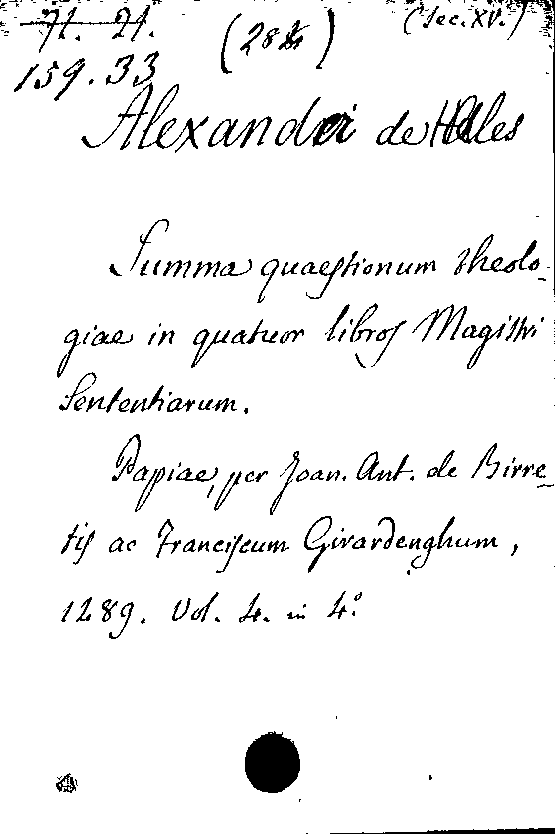 71. 21.
(Sec. XV.)
159.33
Alexandri de Hales
Summa quaestionum theolo-
giae in quatuor libros Magistri
Sententiarum.
Papiae, per Joan. Ant. de Birre-
tis ac Franciscum Girardenghum,
1289. Vol. 4. in 4.º